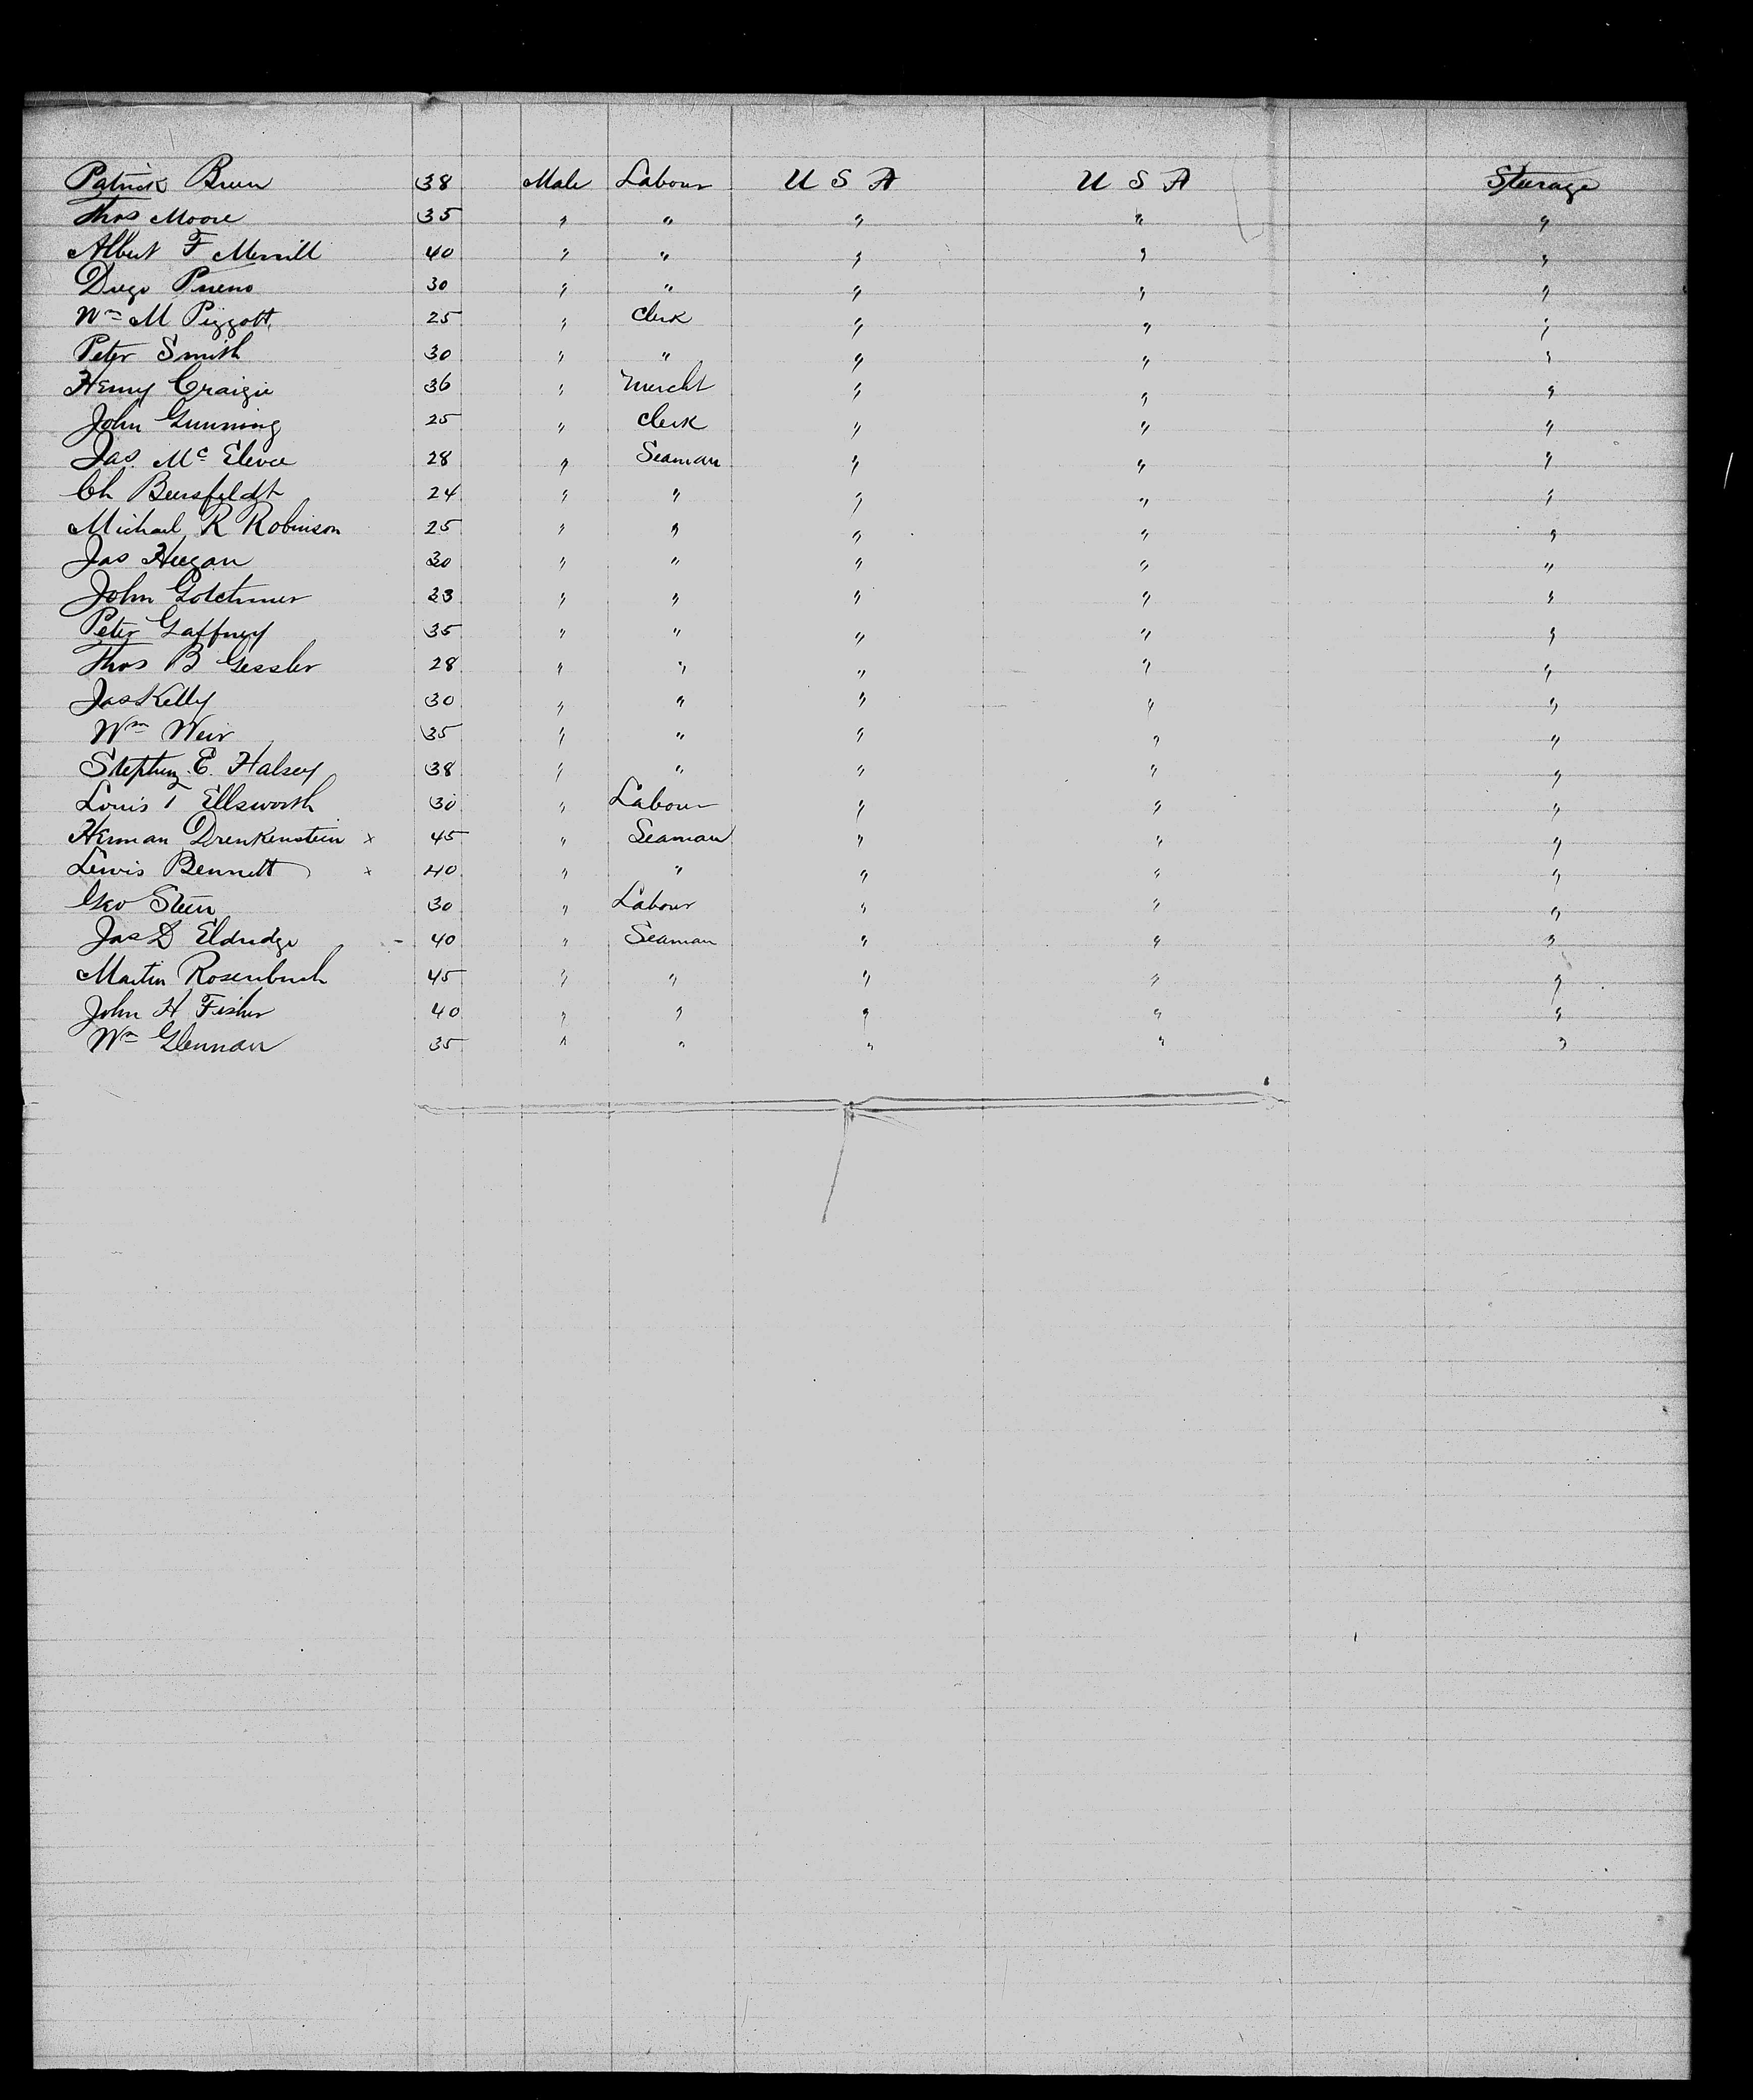 Patrick 38 Male Labour U S A U S A Steerage
Thos Moore 35 " " " " "
Albert F Merrill 40 " " " " "
30 " " " " "
Wm M Piggott 25 " Clerk " " "
Peter Smith 30 " " " " "
Henry Craigie 36 " Mercht " " "
John Gunning 25 " Clerk " " "
Jas. Mc 28 " Seaman " " "
Ch 24 " " " " "
Michael R Robinson 25 " " " " "
Jas 30 " " " " "
John 23 " " " " "
Peter Gaffney 35 " " " " "
Thos B Gessler 28 " " " " "
Jas Kelly 30 " " " " "
Wm Weir 35 " " " " "
Stephen E. Halsey 38 " " " " "
Louis T Ellsworth 30 " Labour " " "
Herman Drenkenstein x 45 " Seaman " " "
Lewis Bennett x 40 " " " " "
Geo Stein 30 " Labour " " "
Jas D Eldridge - 40 " Seaman " " "
Martin Rosenbush 45 " " " " "
John H Fisher 40 " " " " "
Wm Glennan 35 " " " " "